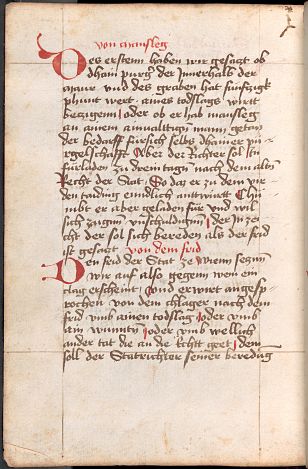 von mansleg
Des ersten haben wir gesaczt ob
dhain purg der Innerhalb der
maur vnd des graben hat funfczigk
phunt wert aines todslags wirtt
beczigenn oder ob er hab manslag
an ainem anwalltigen mann getan
der bedarff fursich selbs dhainer pur-
gelschafft Aber der Richter sol In
furladen zu drein tagen nach dem alten
Recht der Stat So das er zu dem vir-
den taiding enndlich antwurt Chu-
mbt er aber geladen fur vnd wil
sich czaigen vnschuldigen In der In ze-
cht der sol sich bereden als der frid
ist gesaczt von dem frid
Den frid der Stat ze wienn seczen
wir auf also gegenn wen ein
clag erscheint vnd er wirt angesp-
rochen von dem chlager nach dem
frid vmb ainen todslag oder vmb
ain wunnten oder vmb wellich
ander tat die an die Echt geet dem
soll der Statrichter seiner beredung